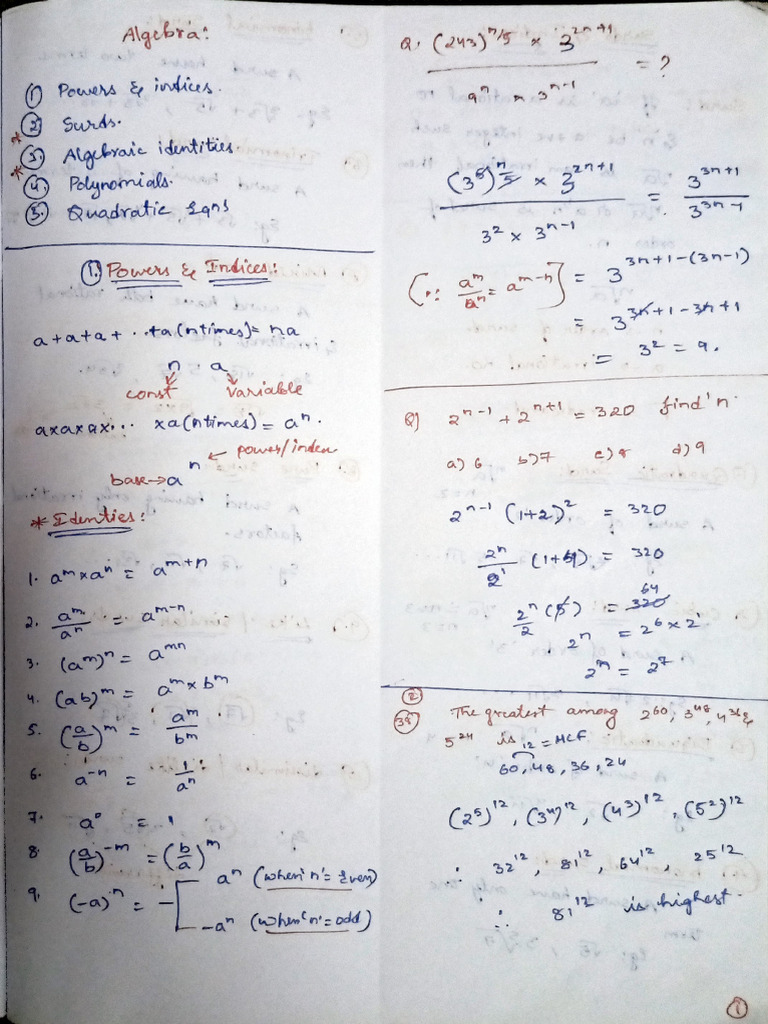 Algebra:
① Powers & indices.
* ② Surds.
* ③ Algebraic identities
④ Polynomials.
⑤ Quadratic Eqns
①. Powers & Indices:
a+a+a+ ..+a(n times) = na
n a
const variable
a×a×a×... ×a(n times) = aⁿ.
n ← power/index
base→a
* Identies:
1. aᵐ×aⁿ = aᵐ⁺ⁿ
2. aᵐ/aⁿ = aᵐ⁻ⁿ
3. (aᵐ)ⁿ = aᵐⁿ
4. (ab)ᵐ = aᵐ×bᵐ
5. (a/b)ᵐ = aᵐ/bᵐ
6. a⁻ⁿ = 1/aⁿ
7. a⁰ = 1
8. (a/b)⁻ᵐ = (b/a)ᵐ
9. (-a)ⁿ = aⁿ (when 'n' = Even)
-aⁿ (when 'n' = odd)
Q. (243)^(n/5) × 3^(2n+1)
9ⁿ × 3ⁿ⁻¹ = ?
(3⁵)^(n/5) × 3^(2n+1) = 3^(3n+1)
3² × 3ⁿ⁻¹ 3^(3n-1)
[∵ aᵐ/aⁿ = aᵐ⁻ⁿ] = 3^(3n+1-(3n-1))
= 3^(3n+1-3n+1)
= 3² = 9.
Q) 2ⁿ⁻¹ + 2ⁿ⁺¹ = 320 find 'n'.
a) 6 b) 7 c) 8 d) 9
2ⁿ⁻¹ (1+2)² = 320
2ⁿ/2¹ (1+4) = 320
64
2ⁿ/2 (5) = 320
2ⁿ = 2⁶ × 2¹
2ⁿ = 2⁷
②
38 The greatest among 2⁶⁰, 3⁴⁸, 4³⁶ &
5²⁴ is 12 = HCF
60, 48, 36, 24
(2⁵)¹², (3⁴)¹², (4³)¹², (5²)¹²
∴ 32¹², 81¹², 64¹², 25¹²
∴ 81¹² is highest.
①